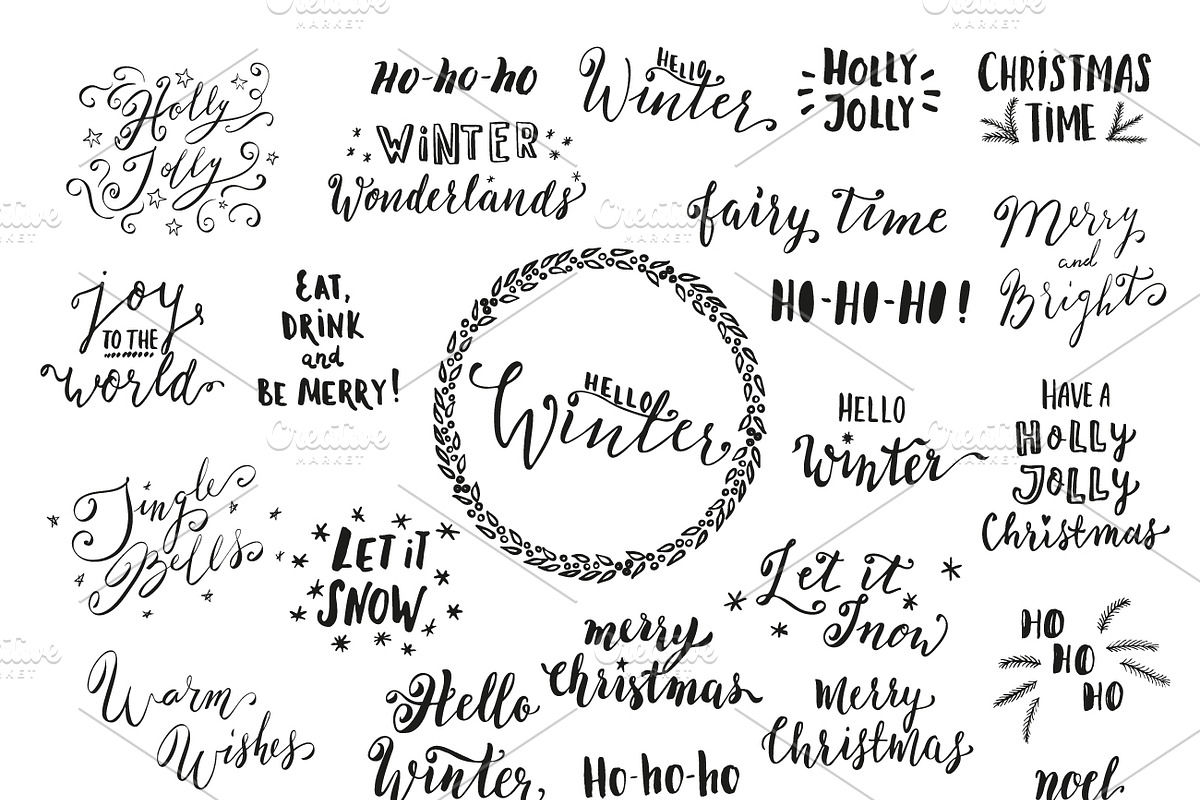 Creative
MARKET
Creative
MARKET
Holly
Jolly
Ho-ho-ho
WiNTER
Wonderlands
HELLO
Winter
HOLLY
JOLLY
CHRiSTMAS
TiME
fairy time
Merry
and
Bright
Creative
MARKET
Creative
MARKET
joy
TO THE
world
EAT,
DRiNK
and
BE MERRY!
HO-HO-HO!
HELLO
Winter
HELLO
Winter
HAVE A
HOLLY
JOLLY
Christmas
Creative
MARKET
Creative
MARKET
Jingle
Bells
LET iT
SNOW
Let it
Snow
merry
christmas
HO
HO
HO
Creative
MARKET
Creative
MARKET
Warm
Wishes
Hello
Winter,
merry
Christmas
Ho-ho-ho
noel